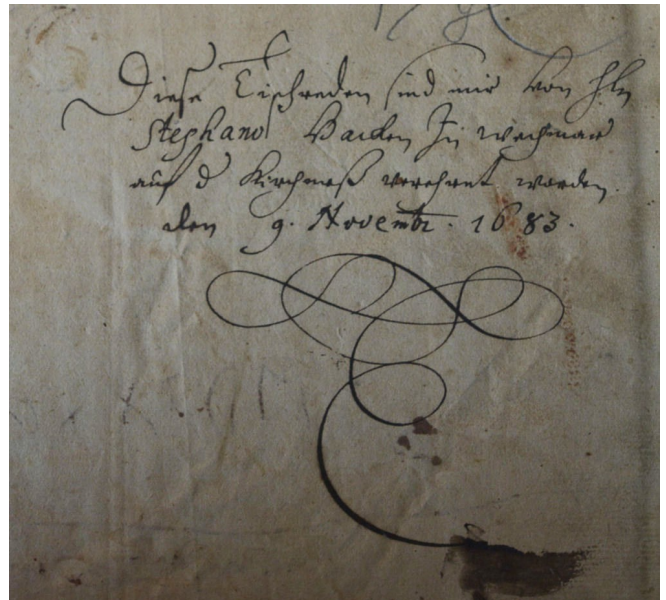 Diese Tischreden sind mir von Hln
Stephano Backen In Wechmar
auf d Kirchmeß verehret worden.
den 9. Novembr. 1683.